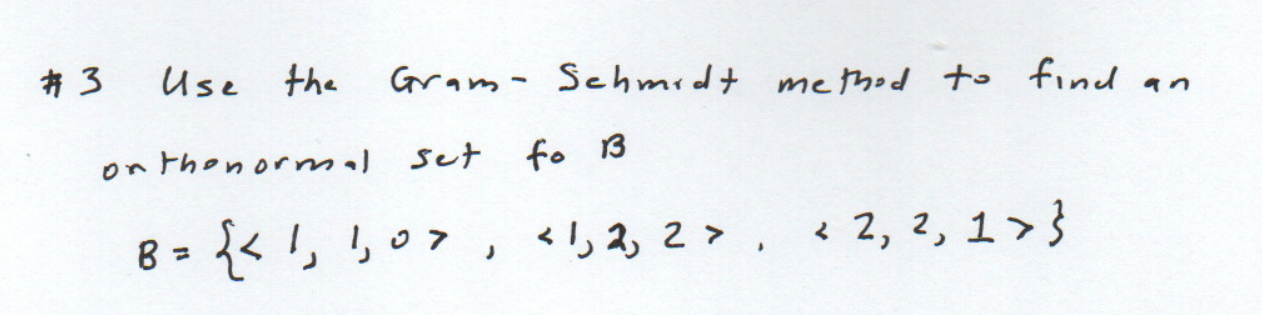 #3 Use the Gram-Schmidt method to find an
orthonormal set fo B
B = {< 1, 1, 0 >, < 1, 2, 2 >, < 2, 2, 1 >}